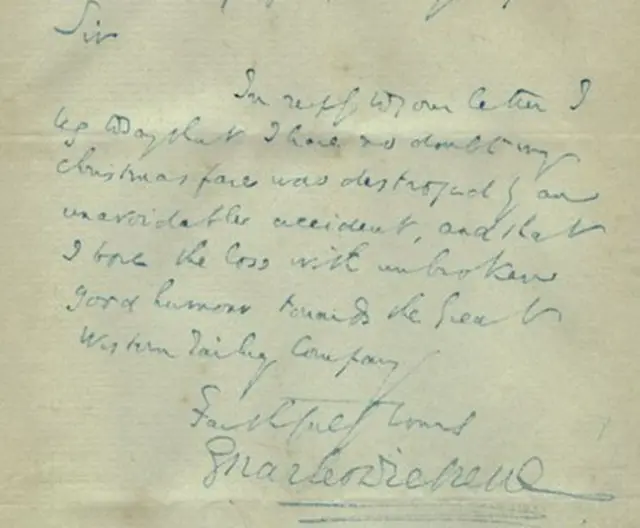 Sir
In reply to your letter I
beg to say that I have no doubt my
christmas fare was destroyed by an
unavoidable accident, and that
I bore the loss with unbroken
good humour towards the Great
Western Railway Company
Faithfully Yours
Charles Dickens